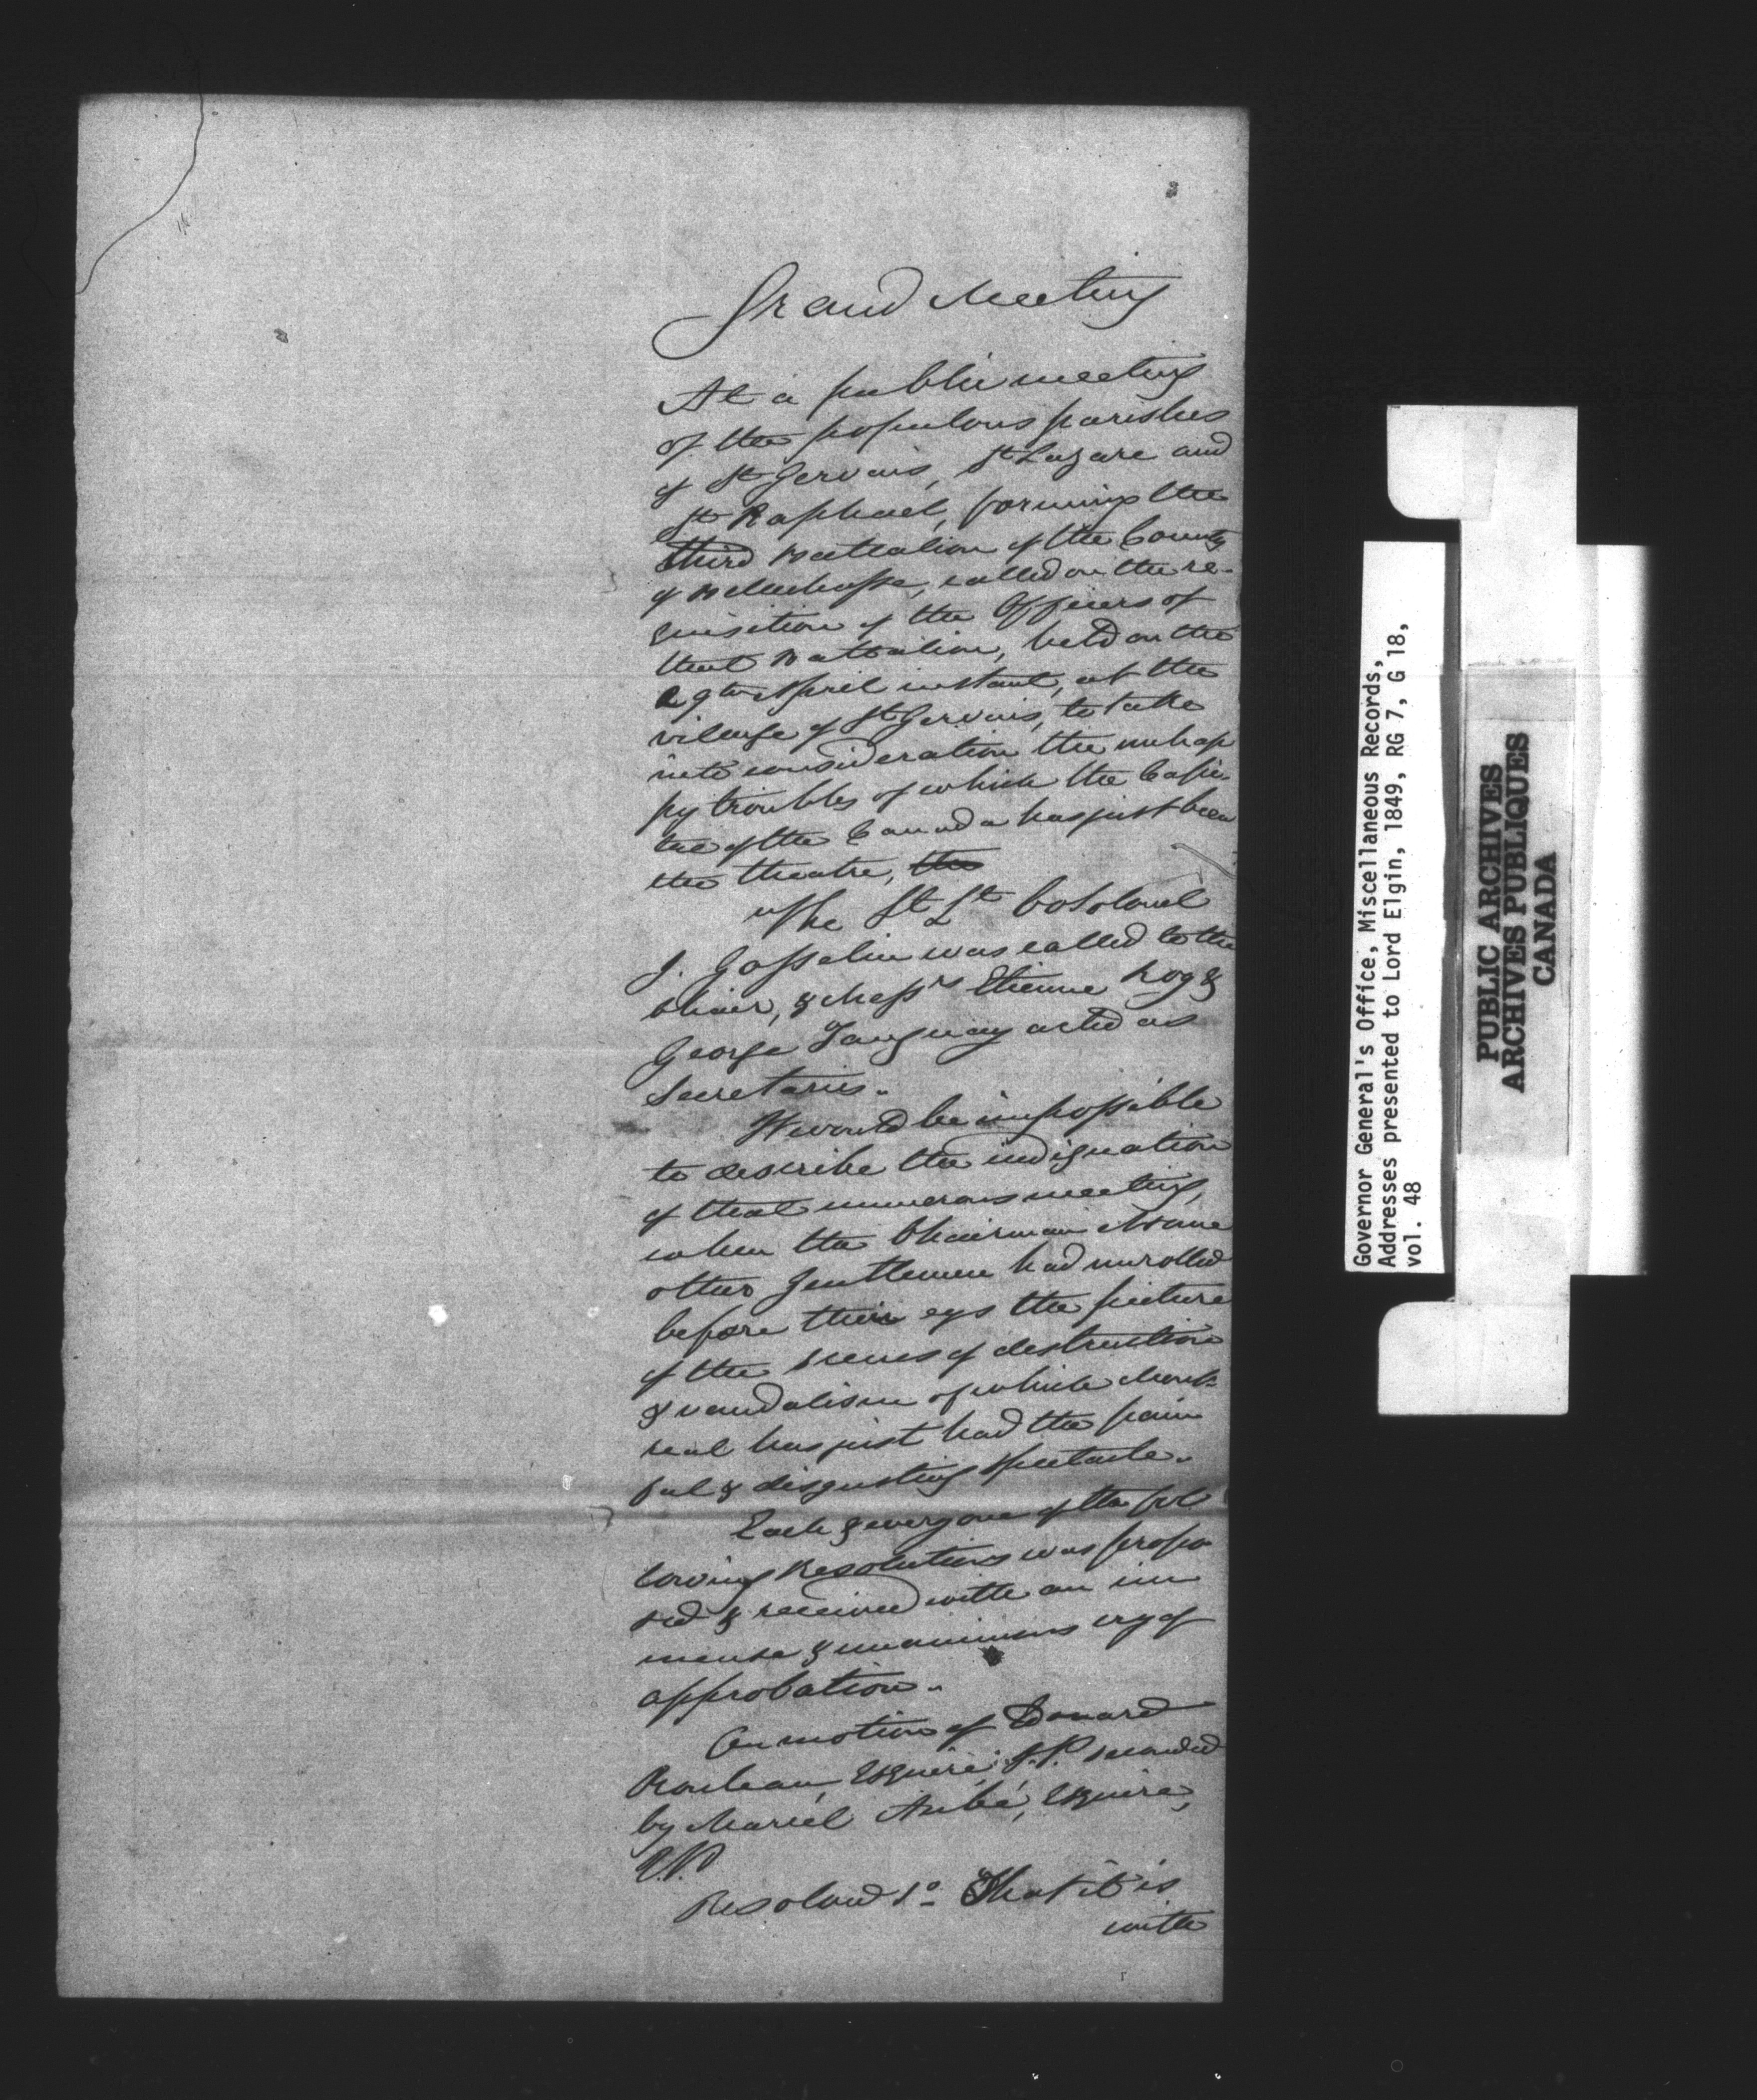 Grand Meeting
At a public meeting
of the populous parishes
of St Gervais, St Lazare and
St Raphael, forming the
third Battalion of the County
of Bellechasse, called on the re-
quisition of the Officers of
that Battalion, held on the
29th April instant, at the
village of St Gervais, to take
into consideration the unhap
py troubles of which the Capi-
tal of the Canada has just been
the theatre, the
The Lt Colonel
J. Gosselin was called to the
Chair, & Messrs Etienne Roy &
George Tanguay acted as
Secretaries.
It would be impossible
to describe the indignation
of that numerous meeting,
when the Chairman & some
other Gentlemen had unrolled
before their eys the picture
of the scenes of destruction
& vandalism of which Mont-
real has just had the pain
ful & disgusting spectacle.
Each & every one of the fol
lowing Resolutions was propo
sed & received with an im
mense & unanimous cry of
approbation.
On motion of Edouard
Rouleau, Esquire, J.P. seconded
by Marcel Aubé, Esquire,
J.P.
Resolved 1º That it is
with
Governor General's Office, Miscellaneous Records,
Addresses presented to Lord Elgin, 1849, RG 7, G 18,
vol. 48
PUBLIC ARCHIVES
ARCHIVES PUBLIQUES
CANADA